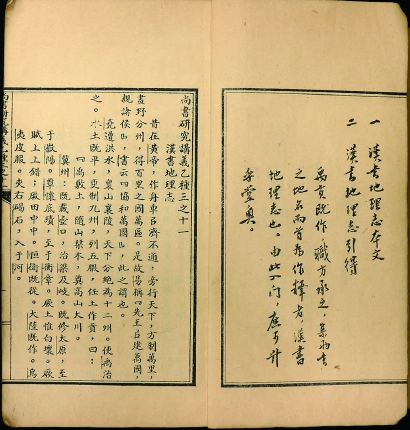 一 漢書地理志本文
二 漢書地理志引得
禹貢既作，職方承之，集
之地名而首為作釋者，漢書
地理志也。由此入門，庶可
堂奧。
尚書研究講義乙種三之十一
漢書地理志
昔在黃帝，作舟車以濟不通，旁行天下，方制萬里，
畫野分州，得百里之國萬區。是故易稱「先王以建萬國，
親諸侯」，書云「協和萬國」，此之謂也。
堯遭洪水，褱山襄陵，天下分絕為十二州。使禹治
之。水土既平，更制九州，列五服，任土作貢，曰：
「禹敷土，隨山栞木，奠高山大川。
冀州：既載壺口，治梁及岐。既修太原，至
于嶽陽。覃懷底績，至于衡章。厥土惟白壤。厥
賦上上錯；厥田中中。恆衞既從。大陸既作。鳥
夷皮服。夾右碣石，入于河。